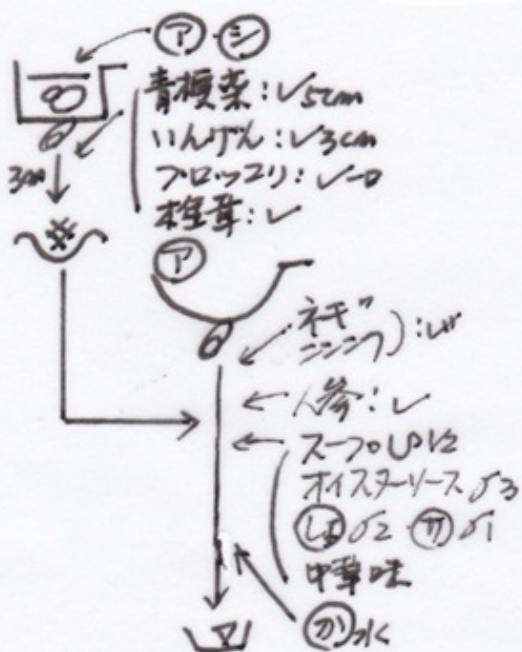 ア シ
青梗菜:✓5cm
いんげん:✓3cm
ブロッコリ:✓一口
椎茸:✓
3m
ア
ネギ
ニンニク):✓
人参:✓
スープ 1/2
オイスターソース 3
しょ 2 サ 1
中華味
か水